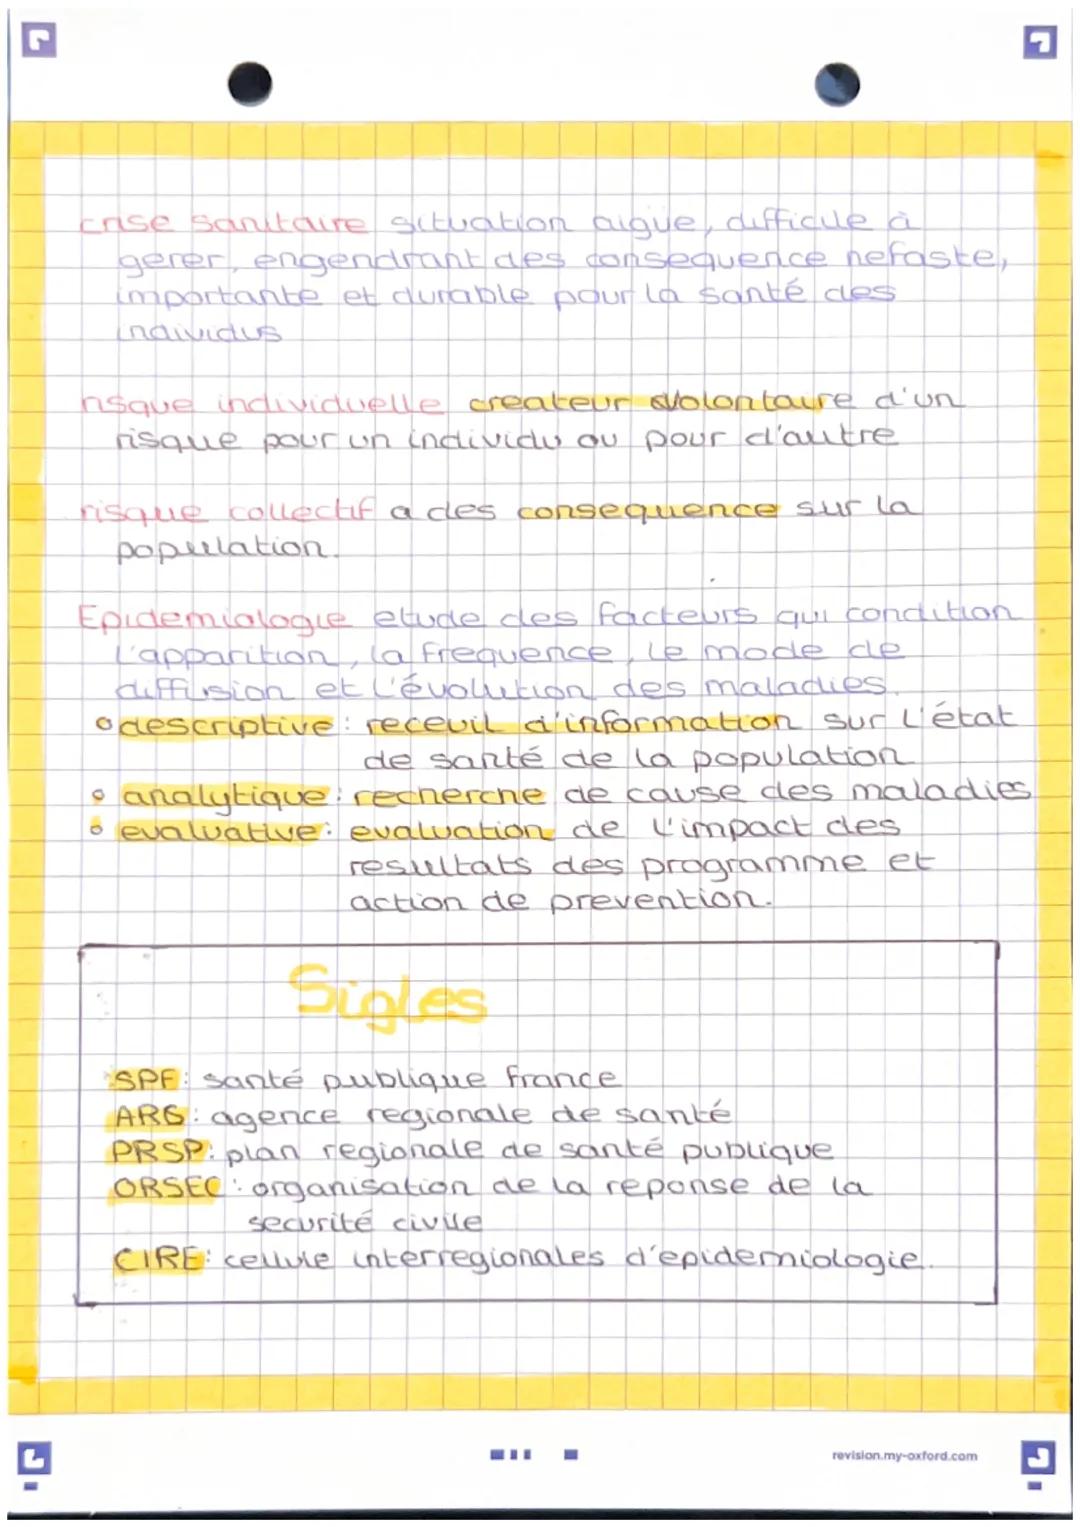 crise sanitaire situation aigüe, difficile à
gerer, engendrant des consequence nefaste,
importante et durable pour la santé des
individus
risque individuelle createur volontaire d'un
risque pour un individu ou pour d'autre
risque collectif a des consequence sur la
population.
Epidemiologie etude des facteurs qui condition
l'apparition, la frequence, le mode de
diffusion et l'évolution des maladies.
descriptive: receuil d'information sur l'état
de santé de la population
analytique: recherche de cause des maladies
evaluative: evaluation de l'impact des
resultats des programme et
action de prevention.
Sigles
SPF: santé publique france
ARS: agence regionale de santé
PRSP: plan regionale de santé publique
ORSEC: organisation de la reponse de la
securité civile
CIRE: cellule interregionales d'epidemiologie.
revision.my-oxford.com